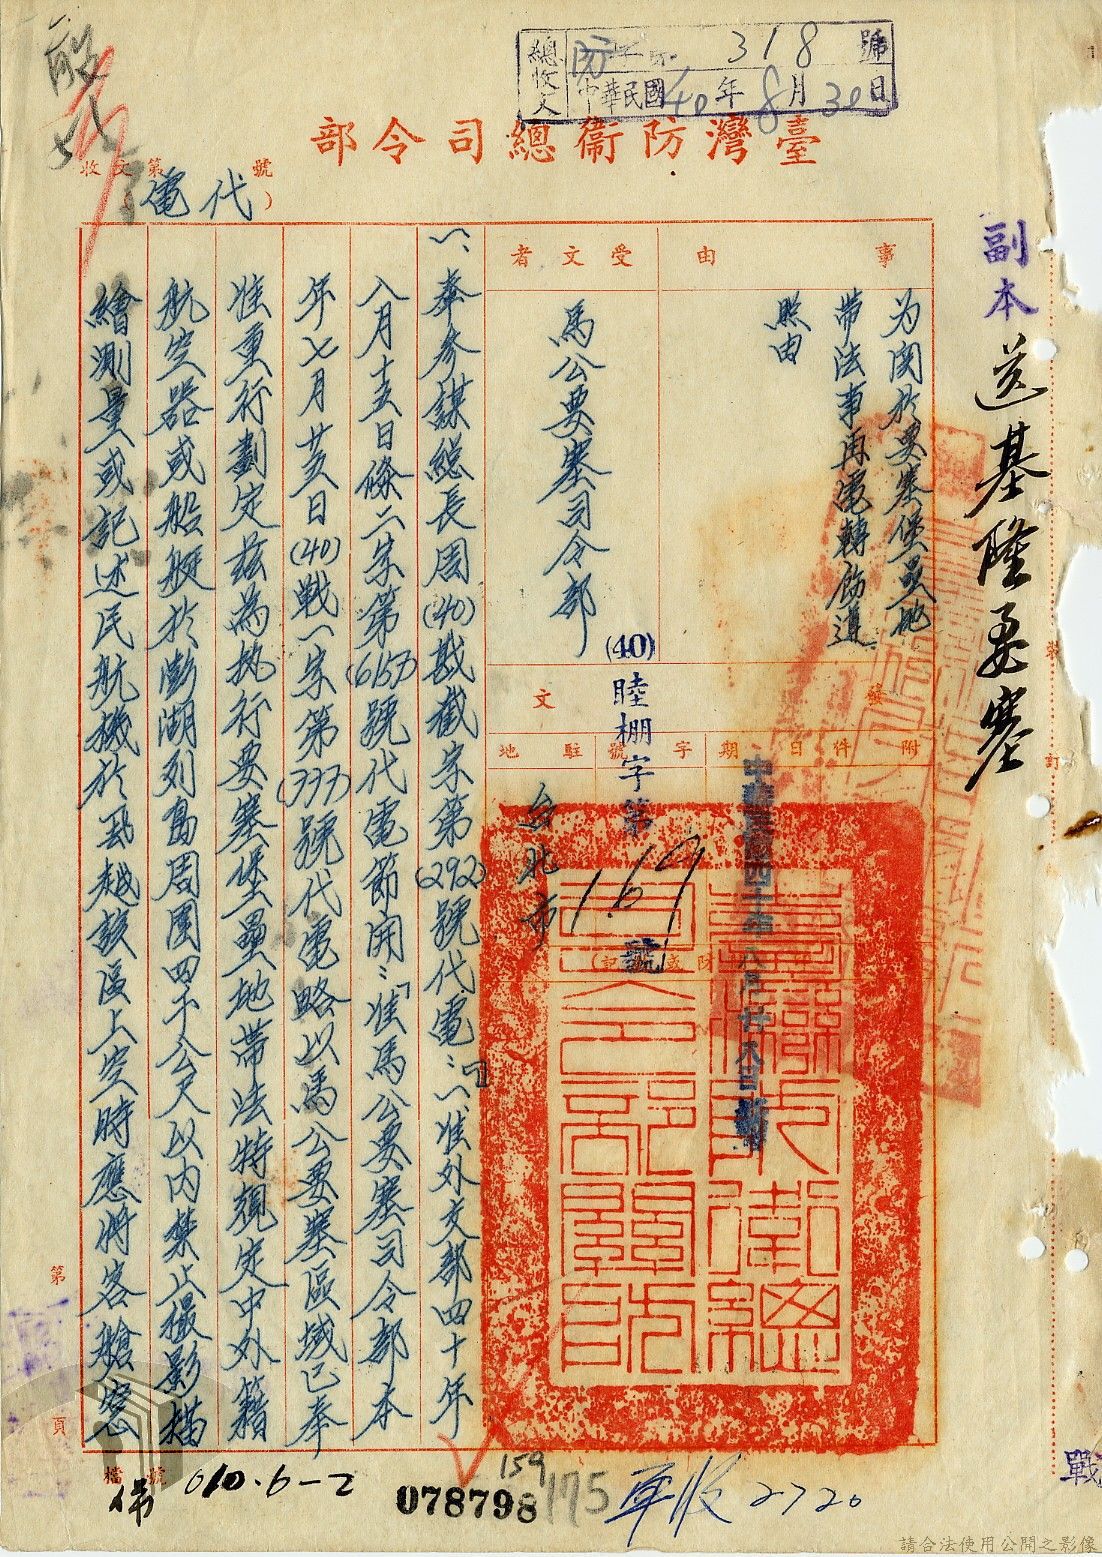 總收文
防 318 號
中華民國40年8月30日
臺灣防衛總司令部
收文第 號
代電
副本
送基隆要塞
事由
为関於要塞堡壘地
帶法事再電轉飭遵
照由
受文者
馬公要塞司令部
發文
附件
日期
字號
駐地
中華民國四十年八月廿八日
(40)睦棚字第
169
號
台北市
一、奉參謀總長周(40)戡截宗第(292)號代電：「准外交部四十年
八月十五日條二宗第(6157)號代電節開：「准馬公要塞司令部本
年七月廿五日(40)戰一宗第(777)號代電略以馬公要塞區域已奉
准重行劃定茲為执行要塞堡壘地帶法特規定中外籍
航空器或船艇於澎湖列島周圍四千公尺以內禁止撮影描
繪測量或記述民航機於飛越該區上空時應將客艙窓
臺灣防衛總司令部關防
第 頁
檔號
010.6-2
078798
159
175
軍收2720
戰
請合法使用公開之影像